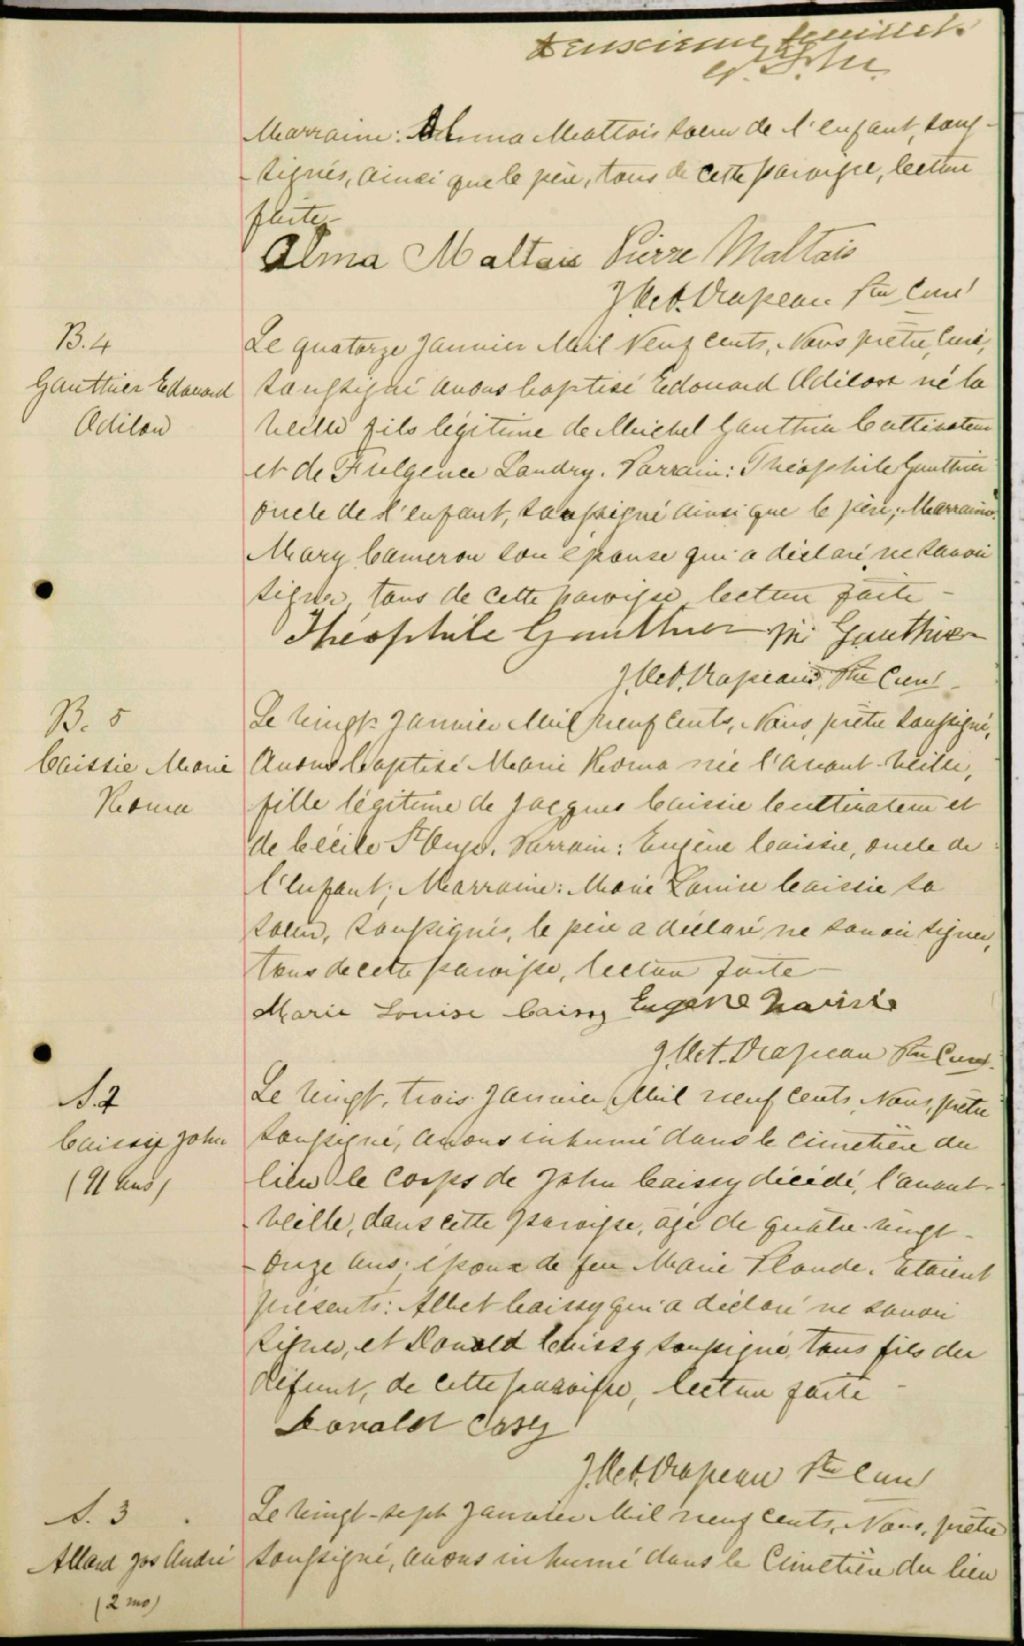 Deuxième feuillet.
Marraine: Alma Maltais soeur de l'enfant, sous-
-signés, ainsi que le père, tous de cette paroisse, lecture
faite-
Alma Maltais Pierre Maltais
J. Vct. Drapeau Ptre Curé
B. 4
Gauthier Edouard
Odilon
Le quatorze Janvier Mil Neuf cents, Nous prêtre, Curé,
soussigné avons baptisé Edouard Odilon né la
veille fils légitime de Michel Gauthier Cultivateur
et de Fulgence Landry. Parrain: Théophile Gauthier
oncle de l'enfant, soussigné ainsi que le père; Marraine:
Mary Cameron son épouse qui a déclaré ne savoir
signer, tous de cette paroisse, lecture faite -
Théophile Gauthier Gauthier
J. Vct. Drapeau Ptre Curé
B. 5
Caissie Marie
Roma
Le vingt Janvier Mil neuf cents, Nous, prêtre soussigné,
Avons baptisé Marie Roma née l'avant-veille,
fille légitime de Jacques Caissie Cultivateur et
de Cécile St Onge. Parrain: Eugène Caissie, oncle de
l'enfant; Marraine: Marie Louise Caissie sa
soeur, soussignés, le père a déclaré ne savoir signer,
tous de cette paroisse, lecture faite -
Marie Louise Caissy Eugène
J. Vct. Drapeau Ptre Curé.
S. 2
Caissy John
(91 ans)
Le vingt-trois Janvier, Mil neuf cents, Nous, prêtre
soussigné, avons inhumé dans le cimetière du
lieu le corps de John Caissy décédé, l'avant-
-veille, dans cette paroisse, âgé de quatre-vingt-
-onze ans; époux de feu Marie Plonde. Etaient
présents: Albert Caissy qui a déclaré ne savoir
signer, et Donald Caissy soussigné, tous fils du
défunt, de cette paroisse, lecture faite -
Donald Casy
J. Vct. Drapeau Ptre Curé
S. 3
Allard Jos André
(2 mo)
Le vingt-sept Janvier Mil neuf cents, Nous, prêtre
soussigné, avons inhumé dans le Cimetière du lieu